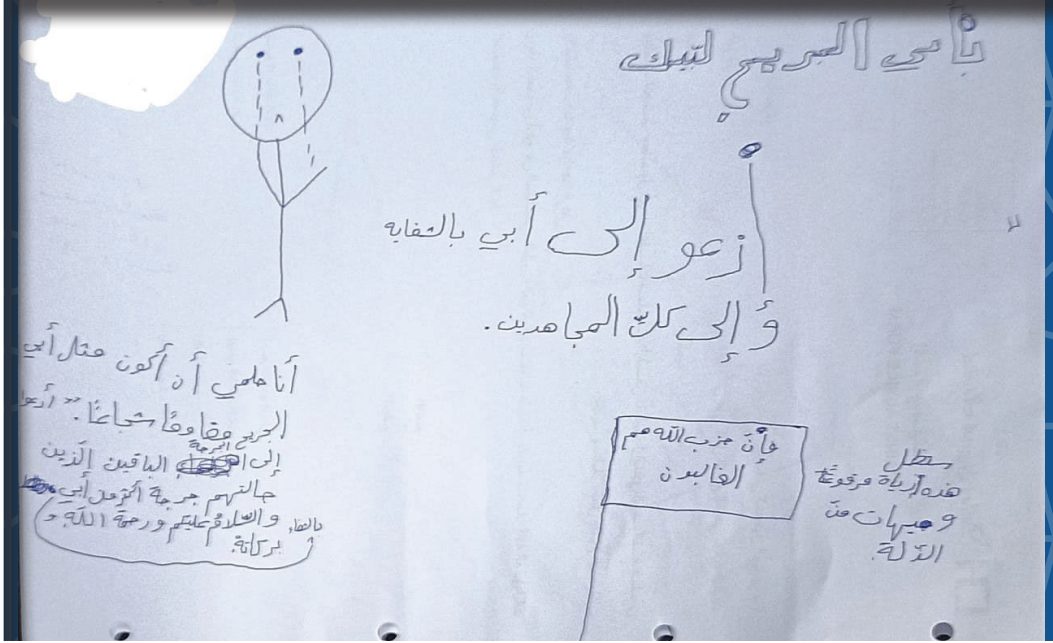 يأبي الجريح لبيك
أزعو إلى أبي بالشفايه
وُ إلى كلّ المجاهدين.
أنا حلمي أن أكون مثل أبي
الجريح مقاومًا شجاعًا." أدعو
إلى الجرحة الباقين الّذين
حالتهم حرجة أكثر من أبي
بالشفاء والسّلامُ عليكم ورحمة اللّه و
بركاتة.
فإنّ حزب اللّه هم
الغالبون
ستظل
هذه أرياة مرفوعتًا
وهيهات منّ
الذّلة.